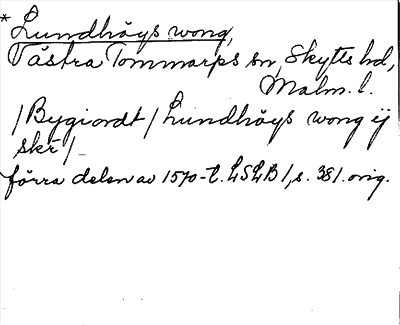 * Lundhöys wong,
Västra Tommarps sn, Skytts hd,
Malm. l.
/Bygiordt/ Lundhöys wong ij
skr /-
förra delen av 1570-t. LSLB 1, s. 381. orig.